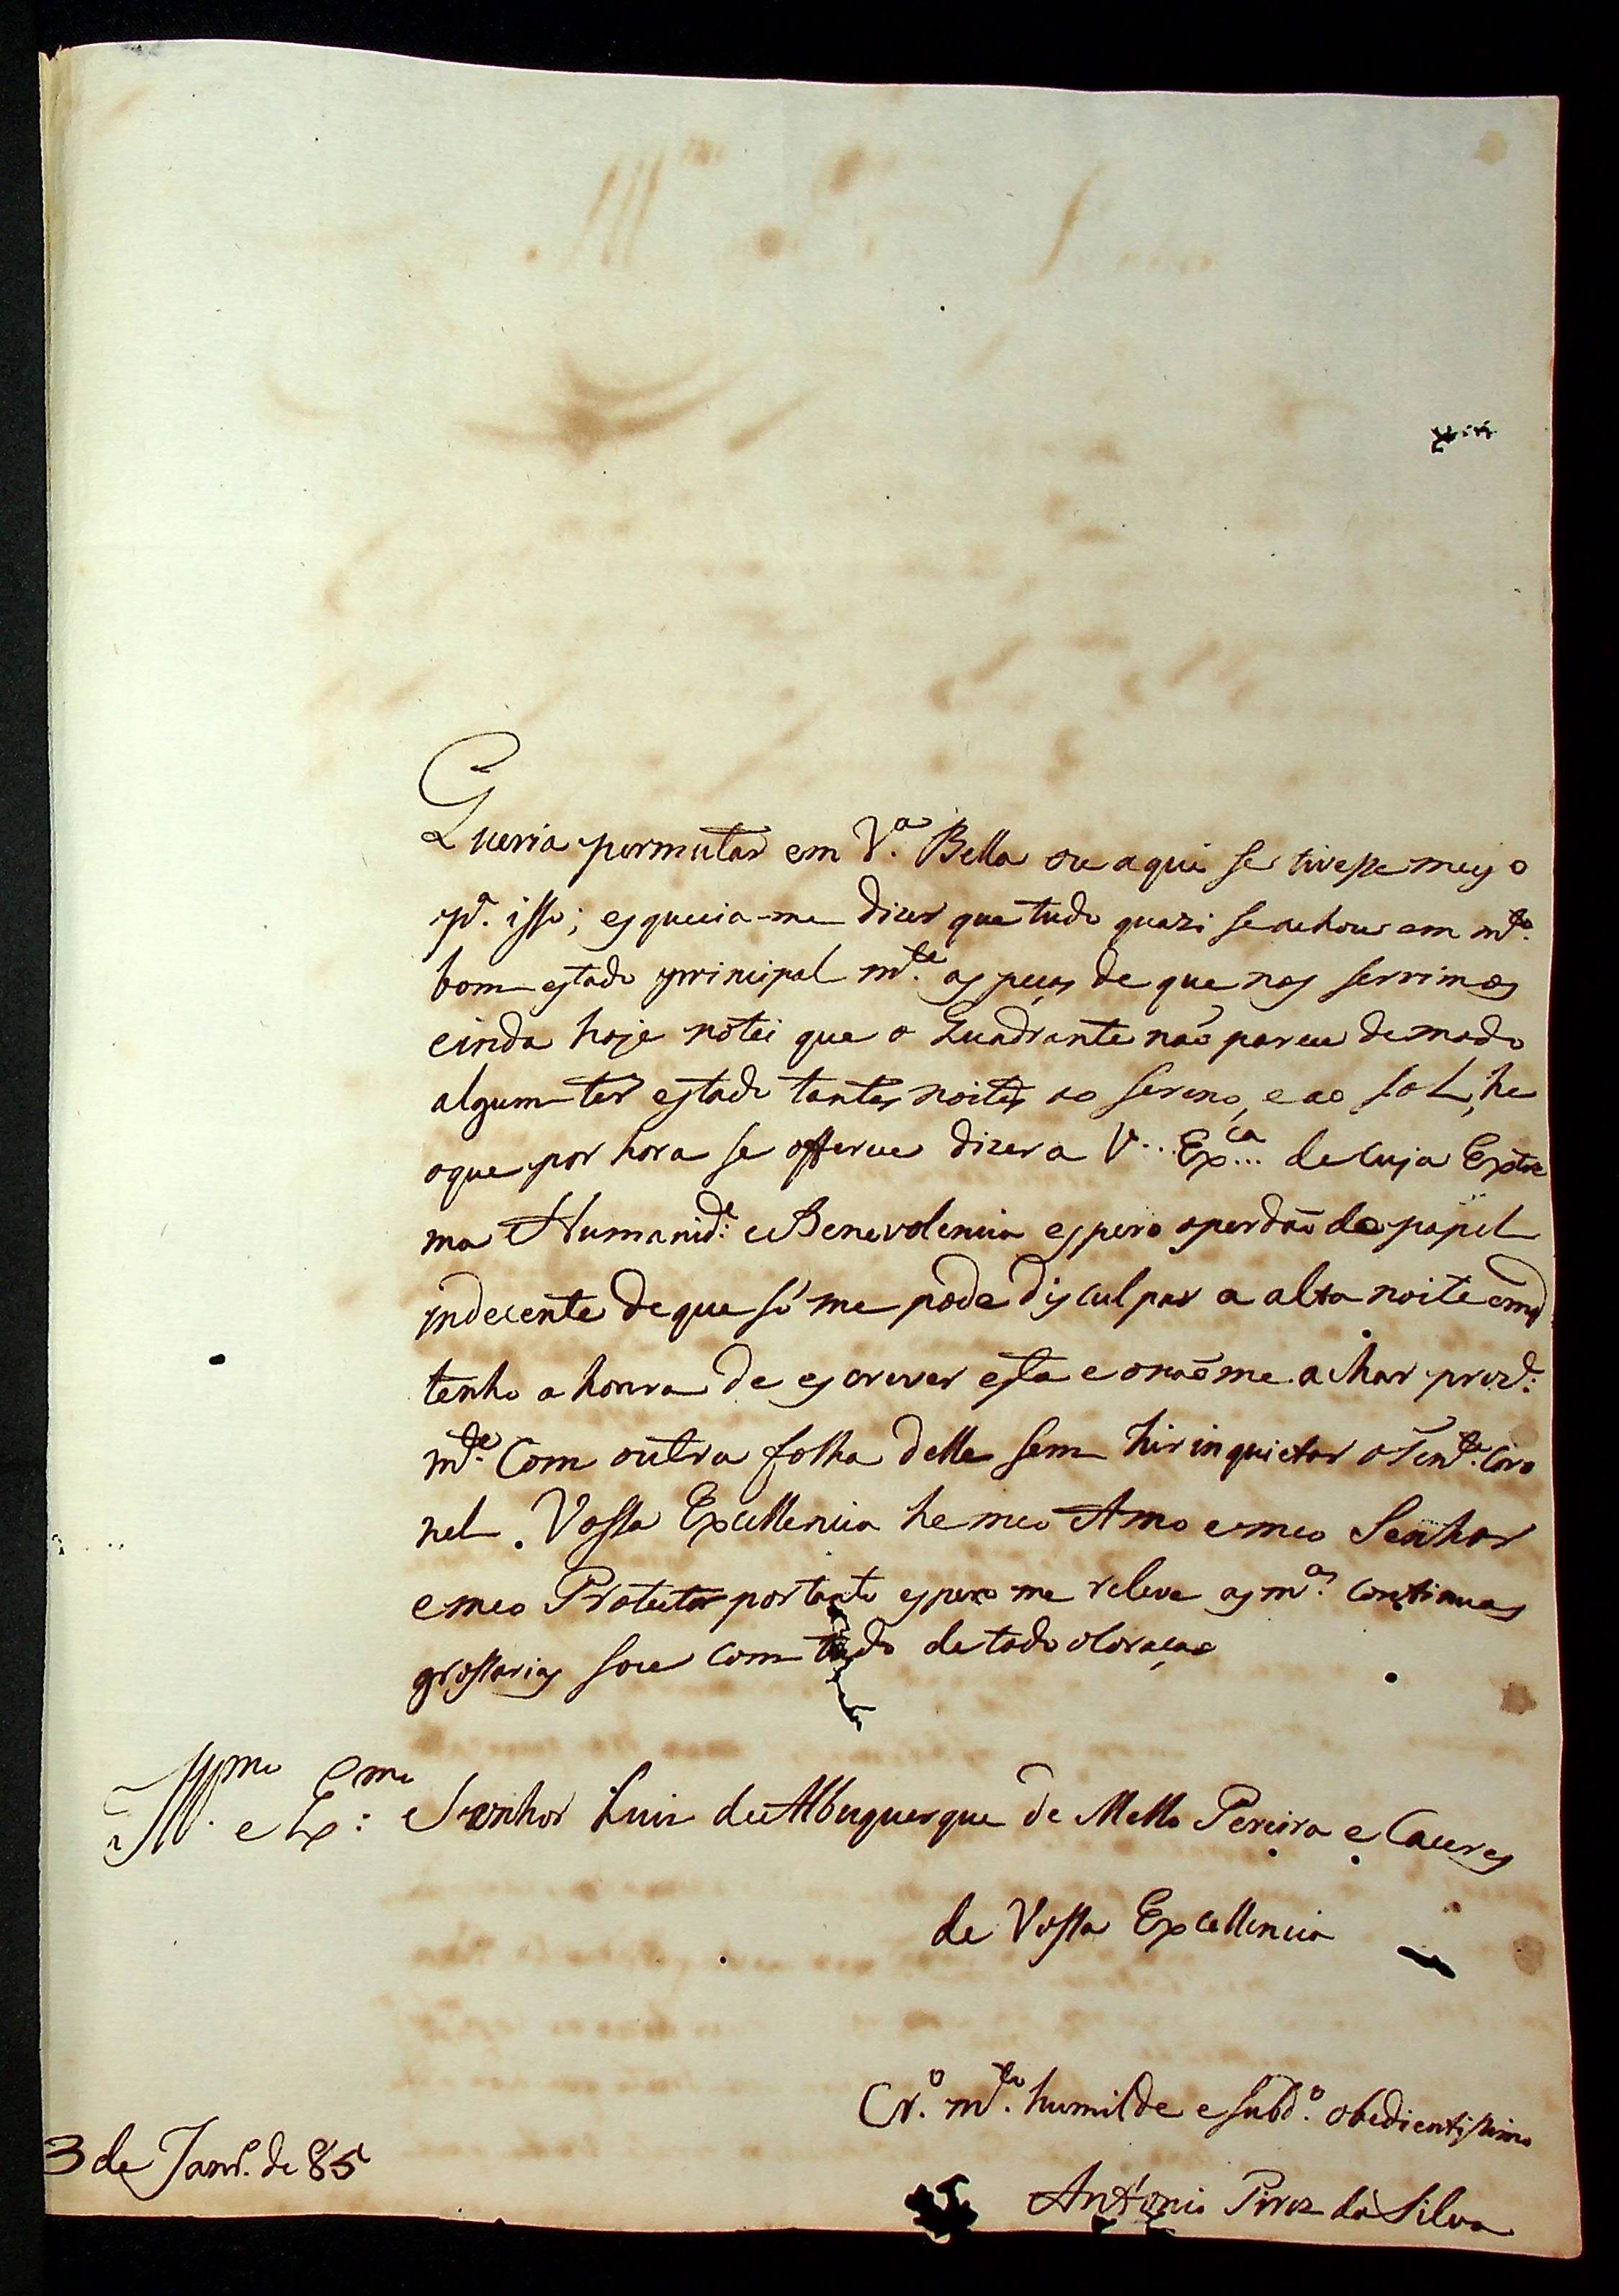 Queria permutar em V.ª Bella ou aqui se tivesse meyo
p.ª isso; esquecia-me dizer que tudo quazi se achou em m.to
bom estado principal m.te as peças de que nos servimos
einda hoje notei que o Quadrante não parece de modo
algum ter estado tantas noites ao sereno, e ao sol, he
o que por hora se offerece dizer a V... Ex.ca... de cuja Extre
ma Humanid.e e Benevolencia espero o perdão do papel
indecente de que só me pode disculpar a alta noite em q
tenho a honra de escrever esta e o não me achar prez.
m.te Com outra folha delle sem hir inquietar o Ten.te Coro
nel. Vossa Excellencia he meo Amo e meo Senhor
e meo Protector portanto espero me releve as m.as continuas
grossarias sou com tudo de todo o Coração
Ill.mo e Ex.mo Senhor Luiz de Albuquerque de Mello Pereira e Caceres
de Vossa Excellencia
Cr.º m.to humilde e subd.º obedientissimo
3 de Janr.º de 85
António Pirez da Silva